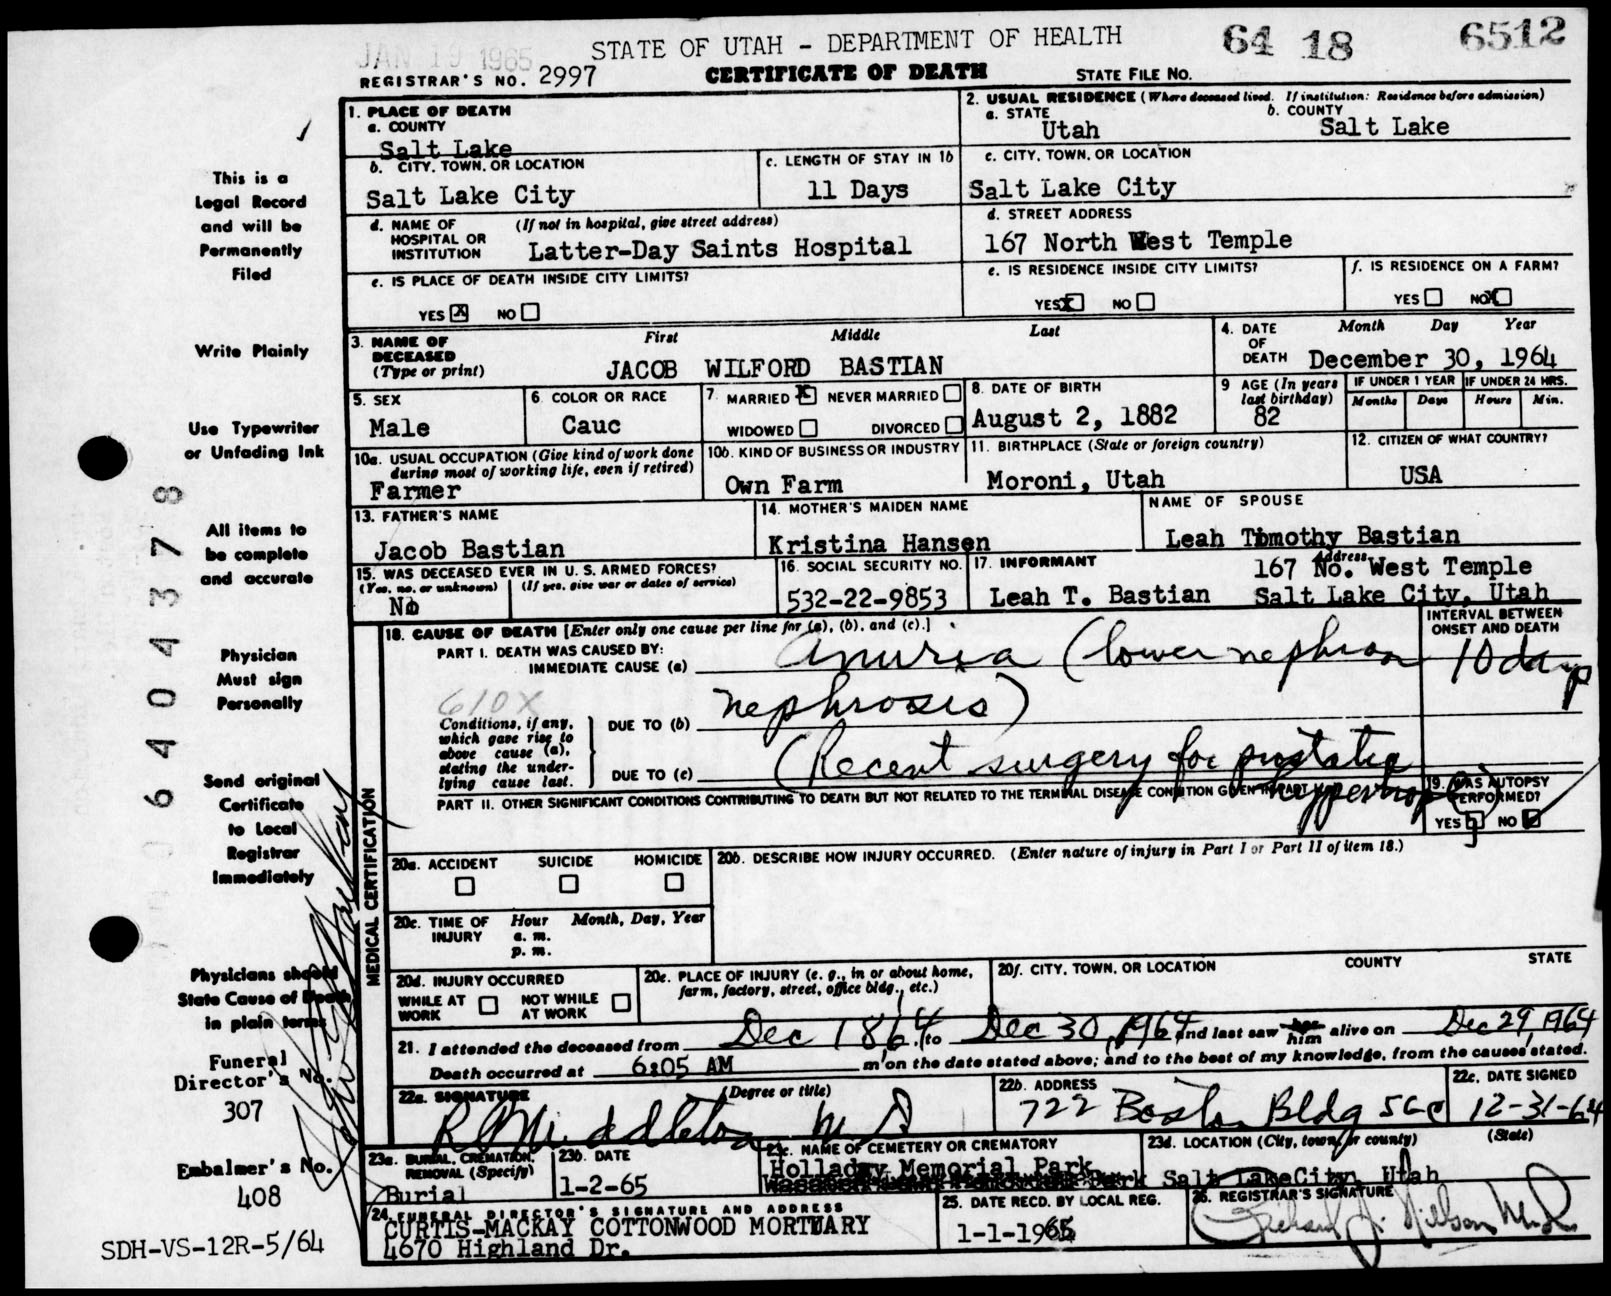 JAN 19 1965
STATE OF UTAH - DEPARTMENT OF HEALTH
64 18 6512
REGISTRAR'S NO. 2997
CERTIFICATE OF DEATH
STATE FILE NO.
1. PLACE OF DEATH
a. COUNTY
Salt Lake
2. USUAL RESIDENCE (Where deceased lived. If institution: Residence before admission)
a. STATE
Utah
b. COUNTY
Salt Lake
b. CITY, TOWN, OR LOCATION
Salt Lake City
c. LENGTH OF STAY IN 1b
11 Days
c. CITY, TOWN, OR LOCATION
Salt Lake City
d. NAME OF HOSPITAL OR INSTITUTION
(If not in hospital, give street address)
Latter-Day Saints Hospital
d. STREET ADDRESS
167 North West Temple
e. IS PLACE OF DEATH INSIDE CITY LIMITS?
YES X NO
e. IS RESIDENCE INSIDE CITY LIMITS?
YES X NO
f. IS RESIDENCE ON A FARM?
YES NO X
3. NAME OF DECEASED
(Type or print)
First Middle Last
JACOB WILFORD BASTIAN
4. DATE OF DEATH
Month Day Year
December 30, 1964
5. SEX
Male
6. COLOR OR RACE
Cauc
7. MARRIED X NEVER MARRIED
WIDOWED DIVORCED
8. DATE OF BIRTH
August 2, 1882
9 AGE (In years last birthday)
82
IF UNDER 1 YEAR
Months Days
IF UNDER 24 HRS.
Hours Min.
10a. USUAL OCCUPATION (Give kind of work done during most of working life, even if retired)
Farmer
10b. KIND OF BUSINESS OR INDUSTRY
Own Farm
11. BIRTHPLACE (State or foreign country)
Moroni, Utah
12. CITIZEN OF WHAT COUNTRY?
USA
13. FATHER'S NAME
Jacob Bastian
14. MOTHER'S MAIDEN NAME
Kristina Hansen
NAME OF SPOUSE
Leah Timothy Bastian
15. WAS DECEASED EVER IN U. S. ARMED FORCES?
(Yes, no, or unknown) (If yes, give war or dates of service)
No
16. SOCIAL SECURITY NO.
532-22-9853
17. INFORMANT
Leah T. Bastian
Address
167 No. West Temple
Salt Lake City, Utah
18. CAUSE OF DEATH [Enter only one cause per line for (a), (b), and (c).]
INTERVAL BETWEEN ONSET AND DEATH
PART I. DEATH WAS CAUSED BY:
IMMEDIATE CAUSE (a)
Anuria (lower nephron
10 days
610X
nephrosis)
Conditions, if any, which gave rise to above cause (a), stating the underlying cause last.
DUE TO (b)
DUE TO (c)
(Recent surgery for prostatic
hypertrophy)
PART II. OTHER SIGNIFICANT CONDITIONS CONTRIBUTING TO DEATH BUT NOT RELATED TO THE TERMINAL DISEASE CONDITION GIVEN IN PART I
19. WAS AUTOPSY PERFORMED?
YES NO
MEDICAL CERTIFICATION
20a. ACCIDENT SUICIDE HOMICIDE
20b. DESCRIBE HOW INJURY OCCURRED. (Enter nature of injury in Part I or Part II of item 18.)
20c. TIME OF INJURY
Hour Month, Day, Year
a. m.
p. m.
20d. INJURY OCCURRED
WHILE AT WORK NOT WHILE AT WORK
20e. PLACE OF INJURY (e. g., in or about home, farm, factory, street, office bldg., etc.)
20f. CITY, TOWN, OR LOCATION COUNTY STATE
21. I attended the deceased from Dec 18 64 to Dec 30, 1964 and last saw her him alive on Dec 29, 1964
Death occurred at 6:05 AM m on the date stated above; and to the best of my knowledge, from the causes stated.
22a. SIGNATURE (Degree or title)
R Middleton M D
22b. ADDRESS
722 Boston Bldg SLC
22c. DATE SIGNED
12-31-64
23a. BURIAL, CREMATION, REMOVAL (Specify)
Burial
23b. DATE
1-2-65
23c. NAME OF CEMETERY OR CREMATORY
Holladay Memorial Park
23d. LOCATION (City, town, or county) (State)
Salt Lake City, Utah
24. FUNERAL DIRECTOR'S SIGNATURE AND ADDRESS
CURTIS-MACKAY COTTONWOOD MORTUARY
4670 Highland Dr.
25. DATE RECD. BY LOCAL REG.
1-1-1965
26. REGISTRAR'S SIGNATURE
This is a
Legal Record
and will be
Permanently
Filed
Write Plainly
Use Typewriter
or Unfading Ink
All items to
be complete
and accurate
Physician
Must sign
Personally
Send original
Certificate
to Local
Registrar
Immediately
Physicians should
State Cause of Death
in plain terms
Funeral
Director's No.
307
Embalmer's No.
408
SDH-VS-12R-5/64
0 6 4 0 4 3 7 8